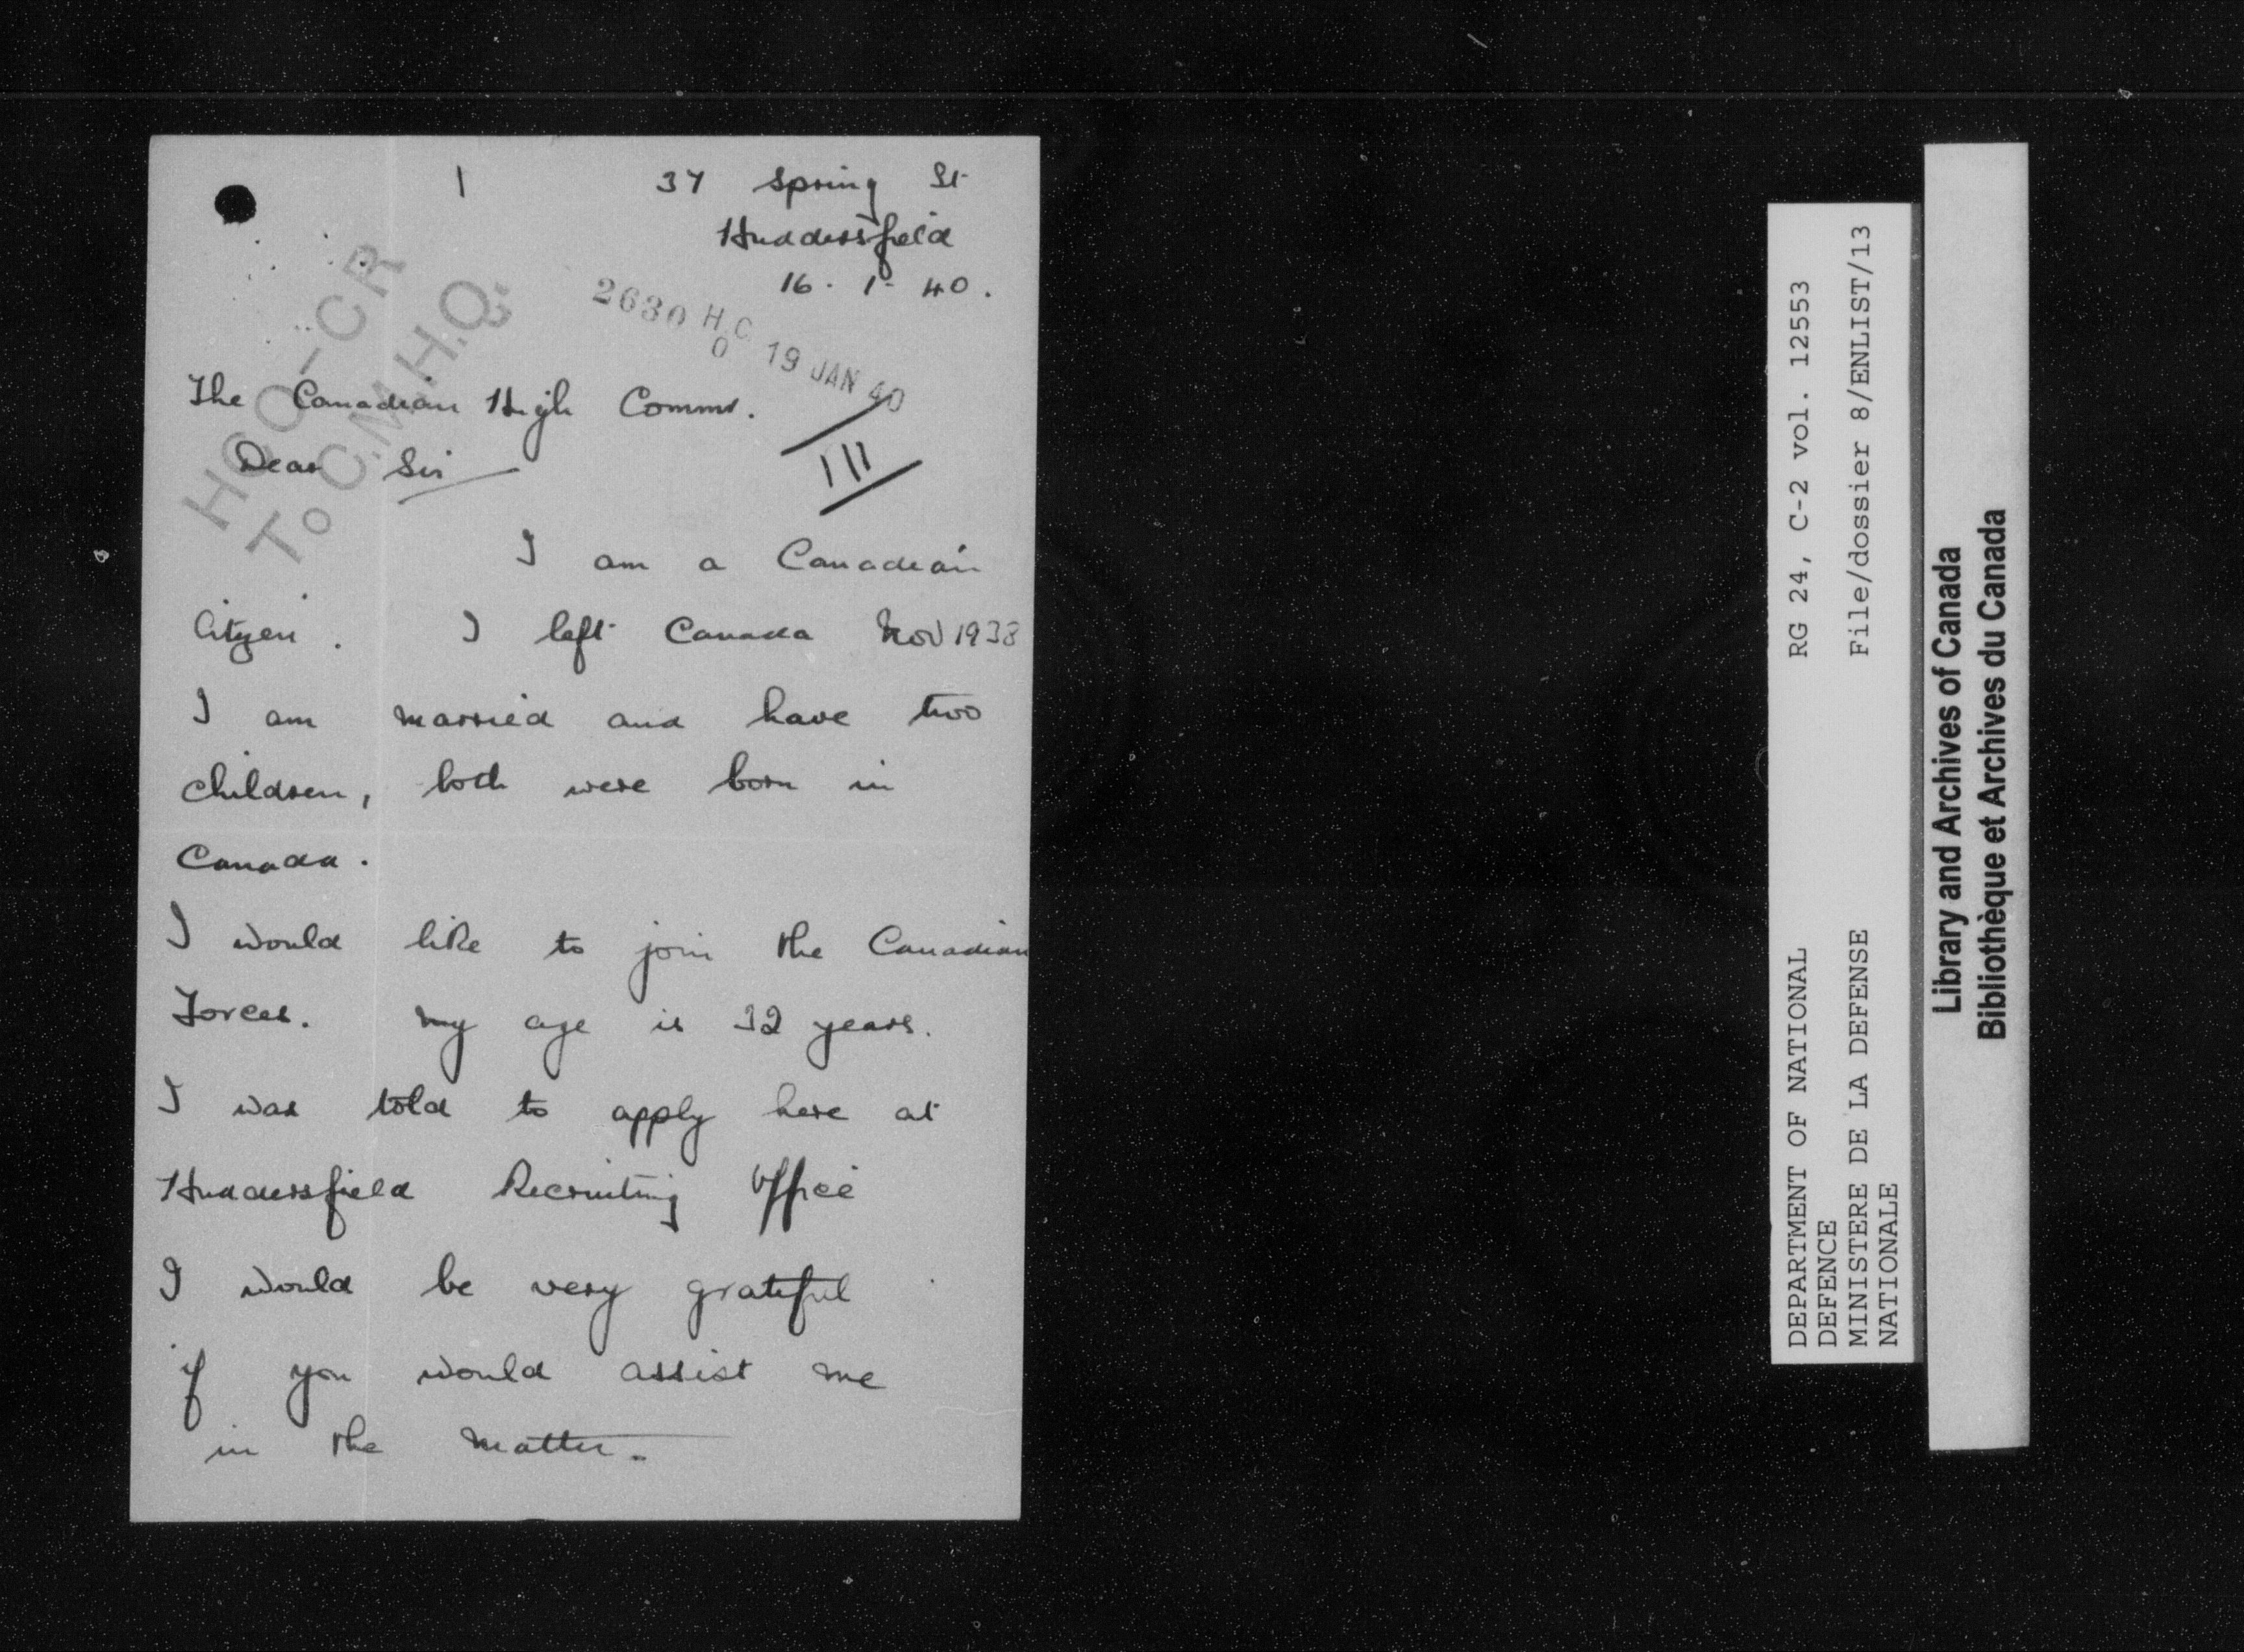 1
37 Spring St
Huddersfield
16. 1. 40.
2630 H.C.O 19 JAN 40
HCO-CR
To C.M.H.Q.
The Canadian High Commr.
Dear Sir
III
I am a Canadian
Citizen. I left Canada Nov 1938
I am married and have two
children, both were born in
Canada.
I would like to join the Canadian
Forces. My age is 32 years.
I was told to apply here at
Huddersfield Recruiting Office
I would be very grateful
if you would assist me
in the matter.
DEPARTMENT OF NATIONAL RG 24, C-2 vol. 12553
DEFENCE
MINISTERE DE LA DEFENSE File/dossier 8/ENLIST/13
NATIONALE
Library and Archives of Canada
Bibliothèque et Archives du Canada